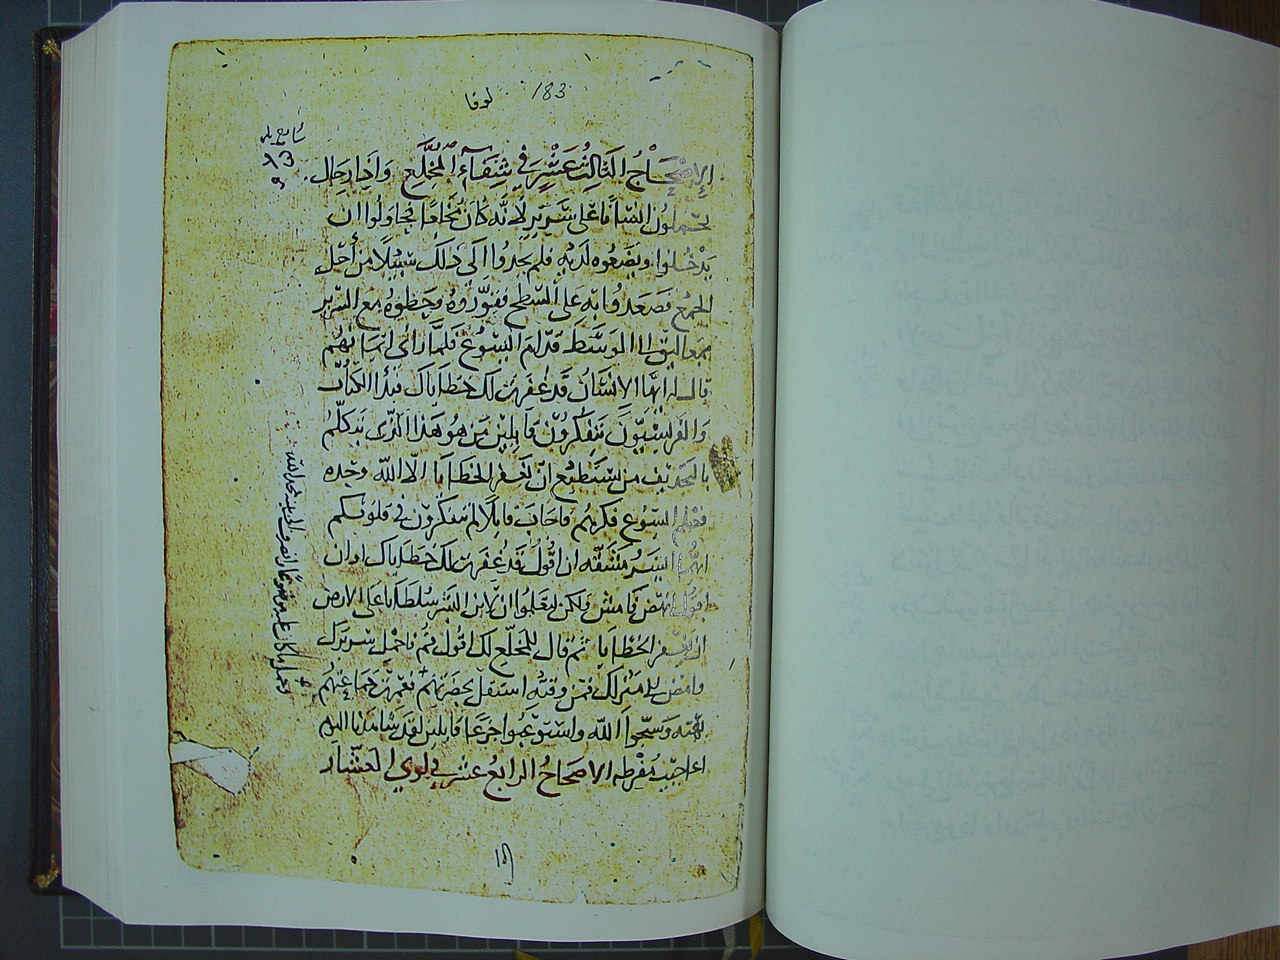 لوقا 183
الإصحَاحُ الثَالِثُ عَشَرَ في شِفَآءِ المُخَلَّعِ وَاذا رجَال
يحملون انسَانا على سَرير لانه كان مخلعًا فحاولوا ان
يدْخلوا ويضعوه لديه فلم يجدوا الى ذلك سبيلًا من أجل
الجمع فصَعدوا به على السّطح ففوّروهُ وحطوهُ مع السّرير
الى الوسَط قدّام اليسُوع فلمّا راى ايمَانهُم
قال له ايّها الانسَان قد غفرت لك خطاياك فبدأ الكتابُ
والفريسيّونَ يتفكرون قايلين من هُو هَذا الذى يتكلّم
بالتجديف من يستَطيع ان يغفر الخطايا الاّ الله وحده
فعلم اليسُوع فكرهُم فاجَابَ قايلًا لم تتفكرون في قلوبكم
ايّهُما ايسَرُ مَشَقّه ان اقُول قد غفرت لك خطاياك او ان
اقول انهض فامش ولكن لتعلموا ان لابن البشر سُلطانا على الارض
ان يغفر الخطَايا ثم قال للمخلّع لك اقول قم فاحمل سريرك
وامض الى منزلك فمن وقتهِ استقل بحضرتهم
بهته وسَبّحوا الله واستوعبوا جزعًا قايلين لقد شاهدنا اليوم
اعاجيب مُفرطه الاصحَاحُ الرابعُ عشر في لوي العشّار
وحمل ما كان عليه موضوعًا